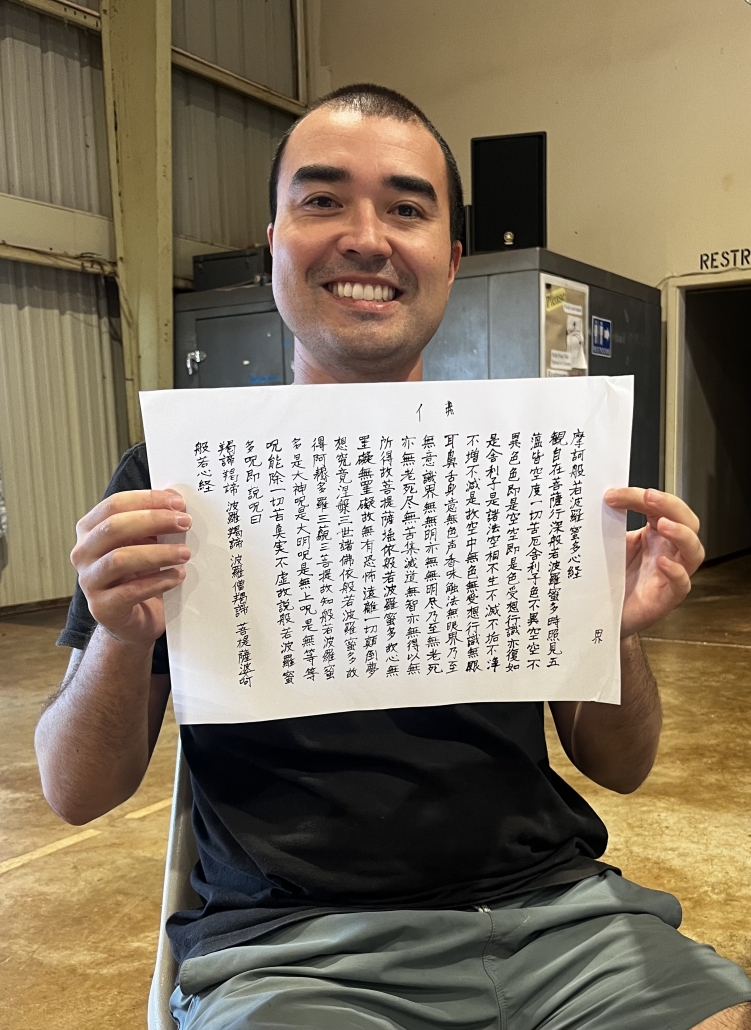 摩訶般若波羅蜜多心経
観自在菩薩行深般若波羅蜜多時照見五
蘊皆空度一切苦厄舎利子色不異空空不
異色色即是空空即是色受想行識亦復如
是舎利子是諸法空相不生不滅不垢不浄
不増不減是故空中無色無受想行識無眼
耳鼻舌身意無色声香味触法無眼界乃至
無意識界無無明亦無無明尽乃至無老死
亦無老死尽無苦集滅道無智亦無得以無
所得故菩提薩埵依般若波羅蜜多故心無
罣礙無罣礙故無有恐怖遠離一切顛倒夢
想究竟涅槃三世諸佛依般若波羅蜜多故
得阿耨多羅三藐三菩提故知般若波羅蜜
多是大神呪是大明呪是無上呪是無等等
呪能除一切苦真実不虚故説般若波羅蜜
多呪即説呪曰
羯諦羯諦 波羅羯諦 波羅僧羯諦 菩提薩婆訶
般若心経
界
RESTR
Please